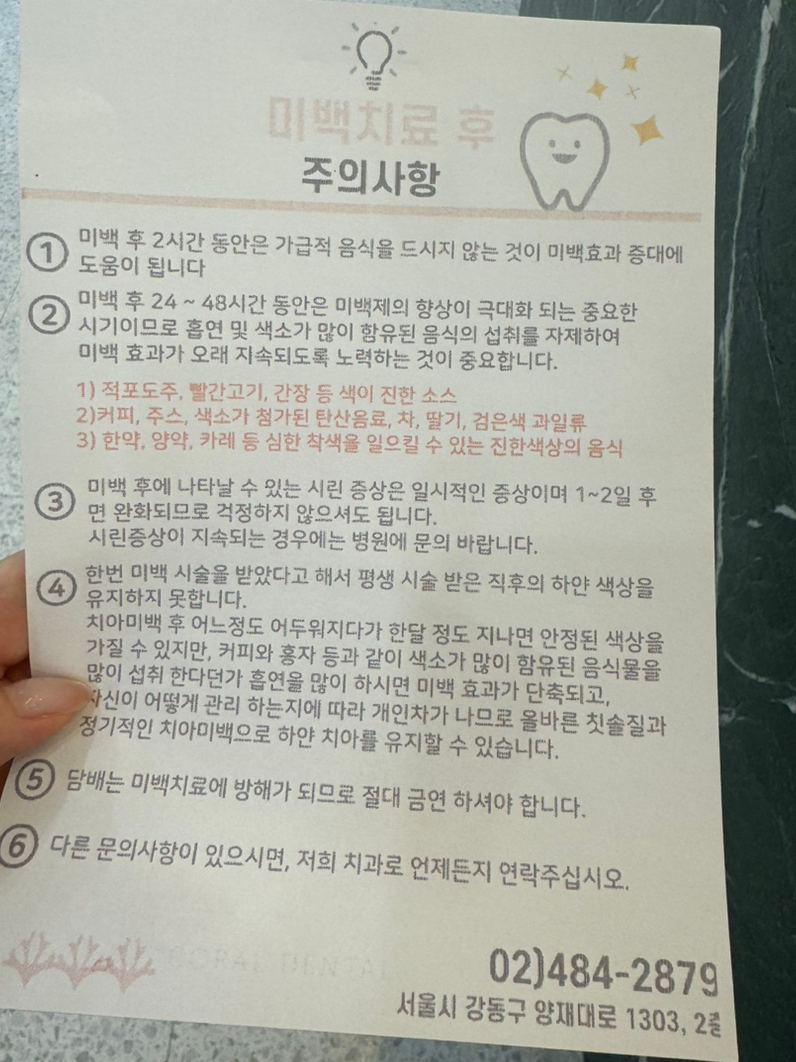 미백치료 후
주의사항
① 미백 후 2시간 동안은 가급적 음식을 드시지 않는 것이 미백효과 증대에
도움이 됩니다
② 미백 후 24 ~ 48시간 동안은 미백제의 향상이 극대화 되는 중요한
시기이므로 흡연 및 색소가 많이 함유된 음식의 섭취를 자제하여
미백 효과가 오래 지속되도록 노력하는 것이 중요합니다.
1) 적포도주, 빨간고기, 간장 등 색이 진한 소스
2)커피, 주스, 색소가 첨가된 탄산음료, 차, 딸기, 검은색 과일류
3) 한약, 양약, 카레 등 심한 착색을 일으킬 수 있는 진한색상의 음식
③ 미백 후에 나타날 수 있는 시린 증상은 일시적인 증상이며 1~2일 후
면 완화되므로 걱정하지 않으셔도 됩니다.
시린증상이 지속되는 경우에는 병원에 문의 바랍니다.
④ 한번 미백 시술을 받았다고 해서 평생 시술 받은 직후의 하얀 색상을
유지하지 못합니다.
치아미백 후 어느정도 어두워지다가 한달 정도 지나면 안정된 색상을
가질 수 있지만, 커피와 홍자 등과 같이 색소가 많이 함유된 음식물을
많이 섭취 한다던가 흡연을 많이 하시면 미백 효과가 단축되고,
자신이 어떻게 관리 하는지에 따라 개인차가 나므로 올바른 칫솔질과
정기적인 치아미백으로 하얀 치아를 유지할 수 있습니다.
⑤ 담배는 미백치료에 방해가 되므로 절대 금연 하셔야 합니다.
⑥ 다른 문의사항이 있으시면, 저희 치과로 언제든지 연락주십시오.
CORAL DENTAL
02)484-2879
서울시 강동구 양재대로 1303, 2층